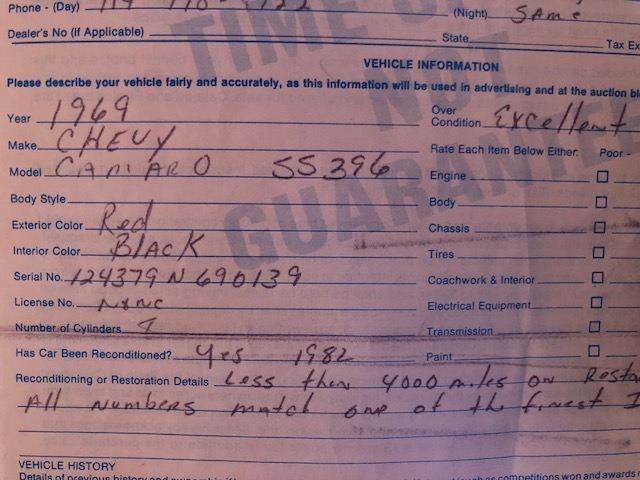 Phone - (Day)
(Night) SAME
Dealer's No (If Applicable) State Tax Ex
TIME
NOT
GUARANTEE
VEHICLE INFORMATION
Please describe your vehicle fairly and accurately, as this information will be used in advertising and at the auction bl
Year 1969
Make CHEVY
Model CAMARO SS 396
Body Style
Exterior Color Red
Interior Color BLACK
Serial No. 124379 N 690139
License No.
Number of Cylinders
Has Car Been Reconditioned? Yes 1982
Reconditioning or Restoration Details Less then 4000 miles on Resto
All numbers match one of the finest I
Over
Condition Excellent
Rate Each Item Below Either: Poor -
Engine
Body
Chassis
Tires
Coachwork & Interior
Electrical Equipment
Transmission
Paint
VEHICLE HISTORY
Details of previous history and ownership competitions won and awards